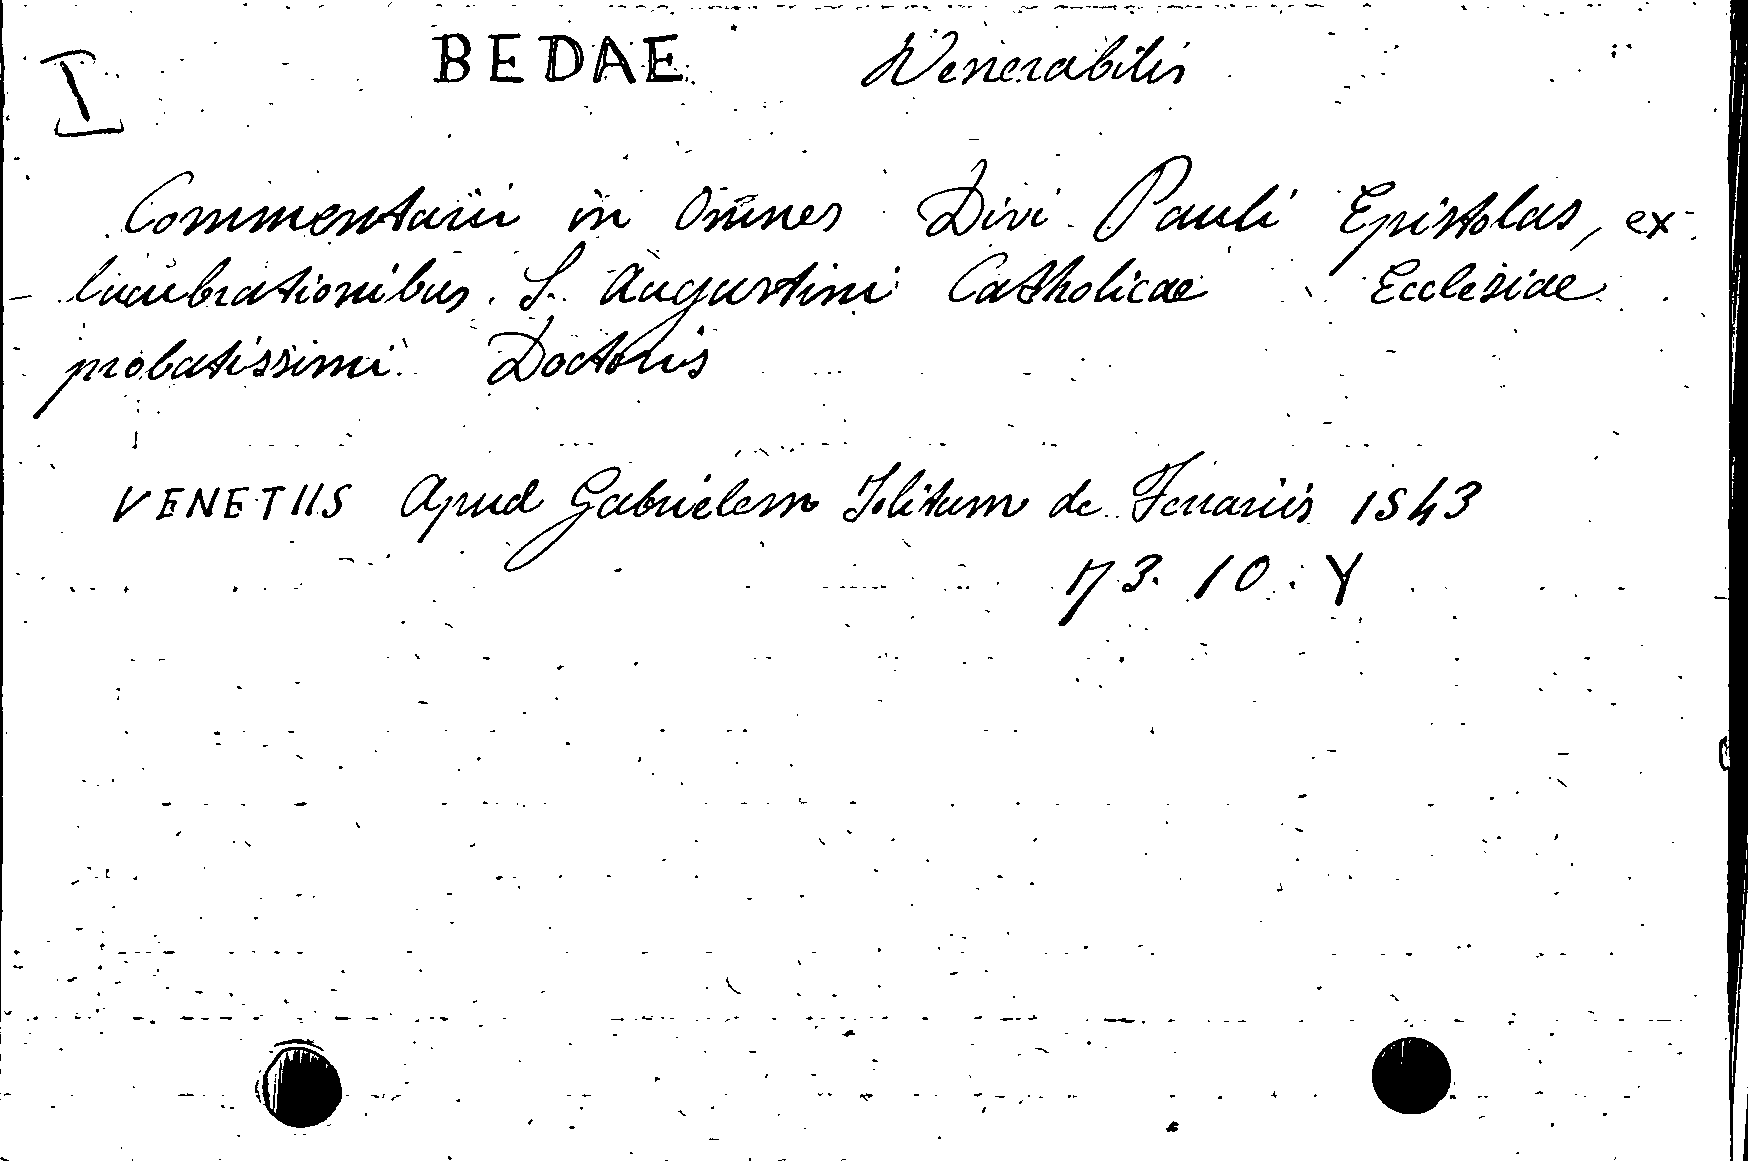 I BEDAE Venerabilis
Commentarii in Omnes Divi Pauli Epistolas, ex
lucubrationibus S. Augustini Catholicae Ecclesiae
probatissimi Doctoris
VENETIIS Apud Gabrielem Jolitum de Ferrariis 1543
173. 10. Y